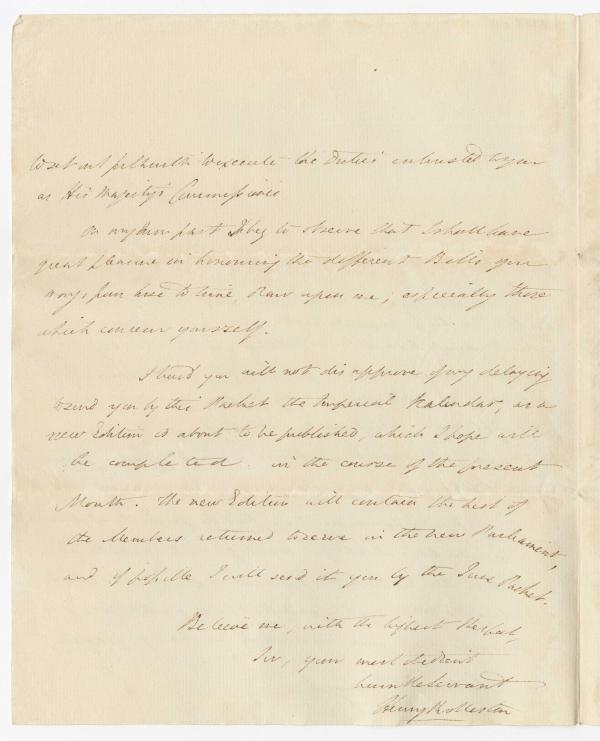 to set out forthwith to execute the Duties intrusted to you
as His Majesty's Commissioner
On my own part I beg to observe that I shall have
great pleasure in honouring the different Bills you
may, from time to time, draw upon me; especially those
which concern yourself.
I trust you will not disapprove of my delaying
to send you by this Packet the Imperial Kalendar, as a
new Edition is about to be published, which I hope will
be completed in the course of the present
Month. The new Edition will contain the list of
the Members returned to serve in the new Parliament,
and if possible I will send it you by the June Packet.
Believe me, with the highest Respect,
Sir, your most obedient
humble Servant
Henry Rolleston